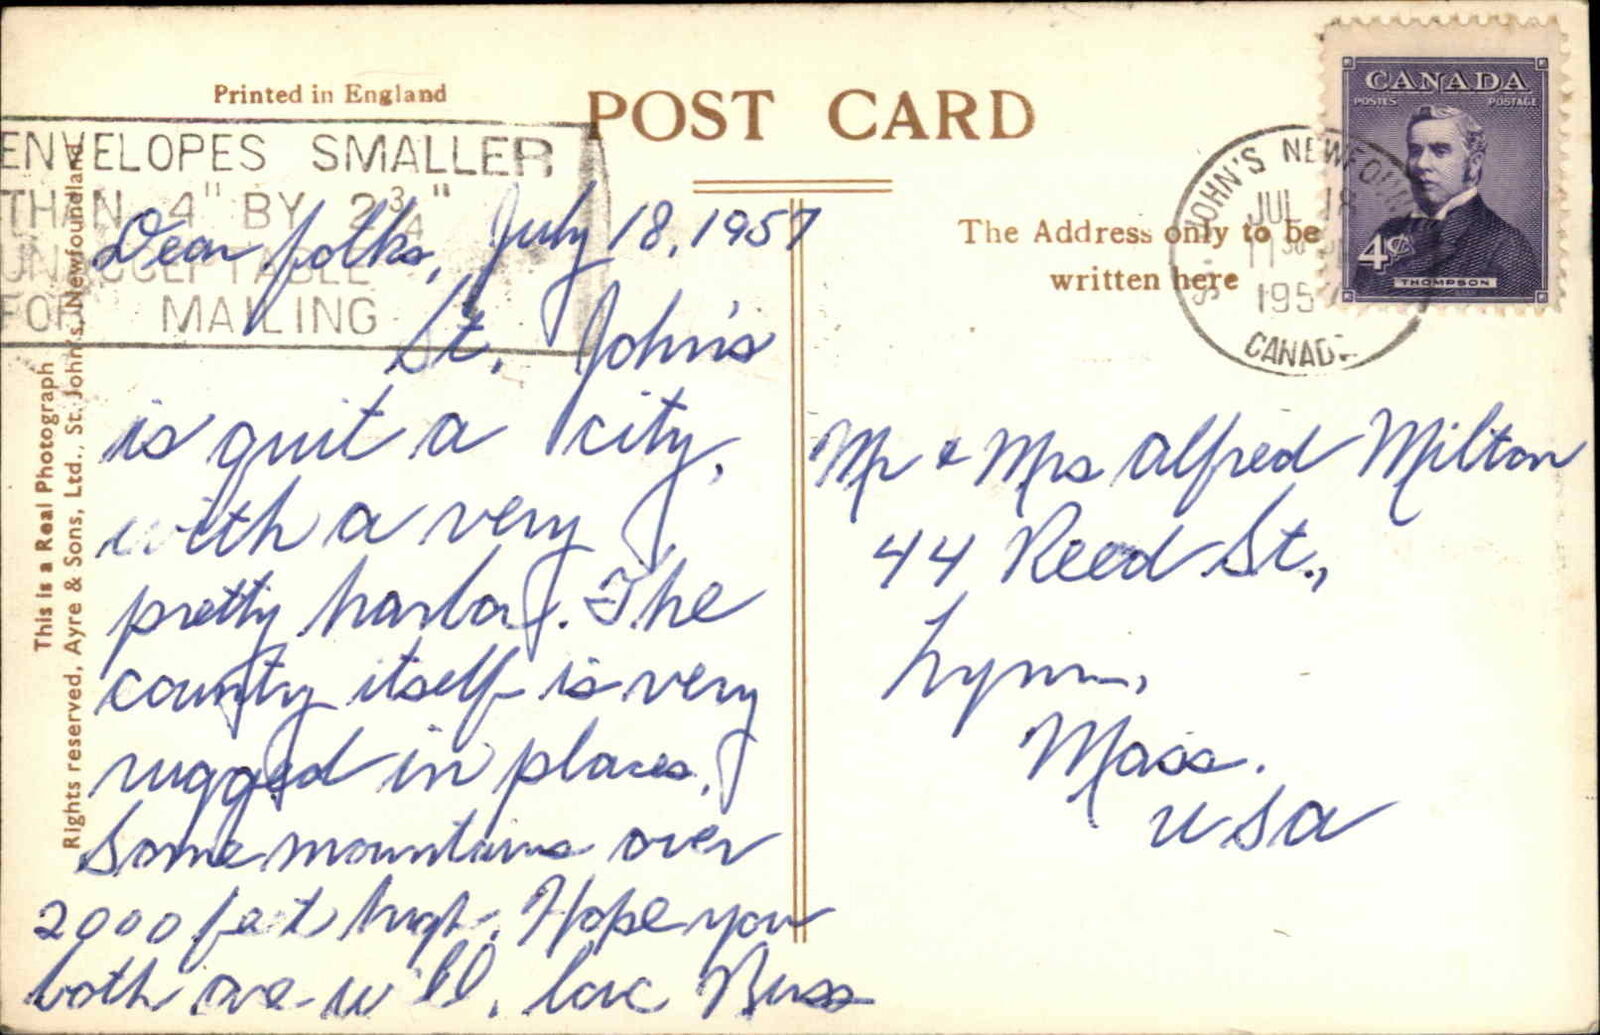 Printed in England
POST CARD
ENVELOPES SMALLER
THAN 4" BY 2 3/4"
UNACCEPTABLE
FOR MAILING
The Address only to be
written here
ST. JOHN'S NEWFOUND
JUL 18
11 30
1957
CANADA
CANADA
POSTES POSTAGE
4¢
THOMPSON
This is a Real Photograph
Rights reserved, Ayre & Sons, Ltd., St. John's, Newfoundland
Dear folks, July 18, 1957
St. John's
is quit a city,
with a very
pretty harbor. The
country itself is very
rugged in places.
Some mountains over
2000 feet high. Hope you
both are well. love Russ
Mr & Mrs Alfred Milton
44 Reed St.,
Lynn,
Mass.
USA